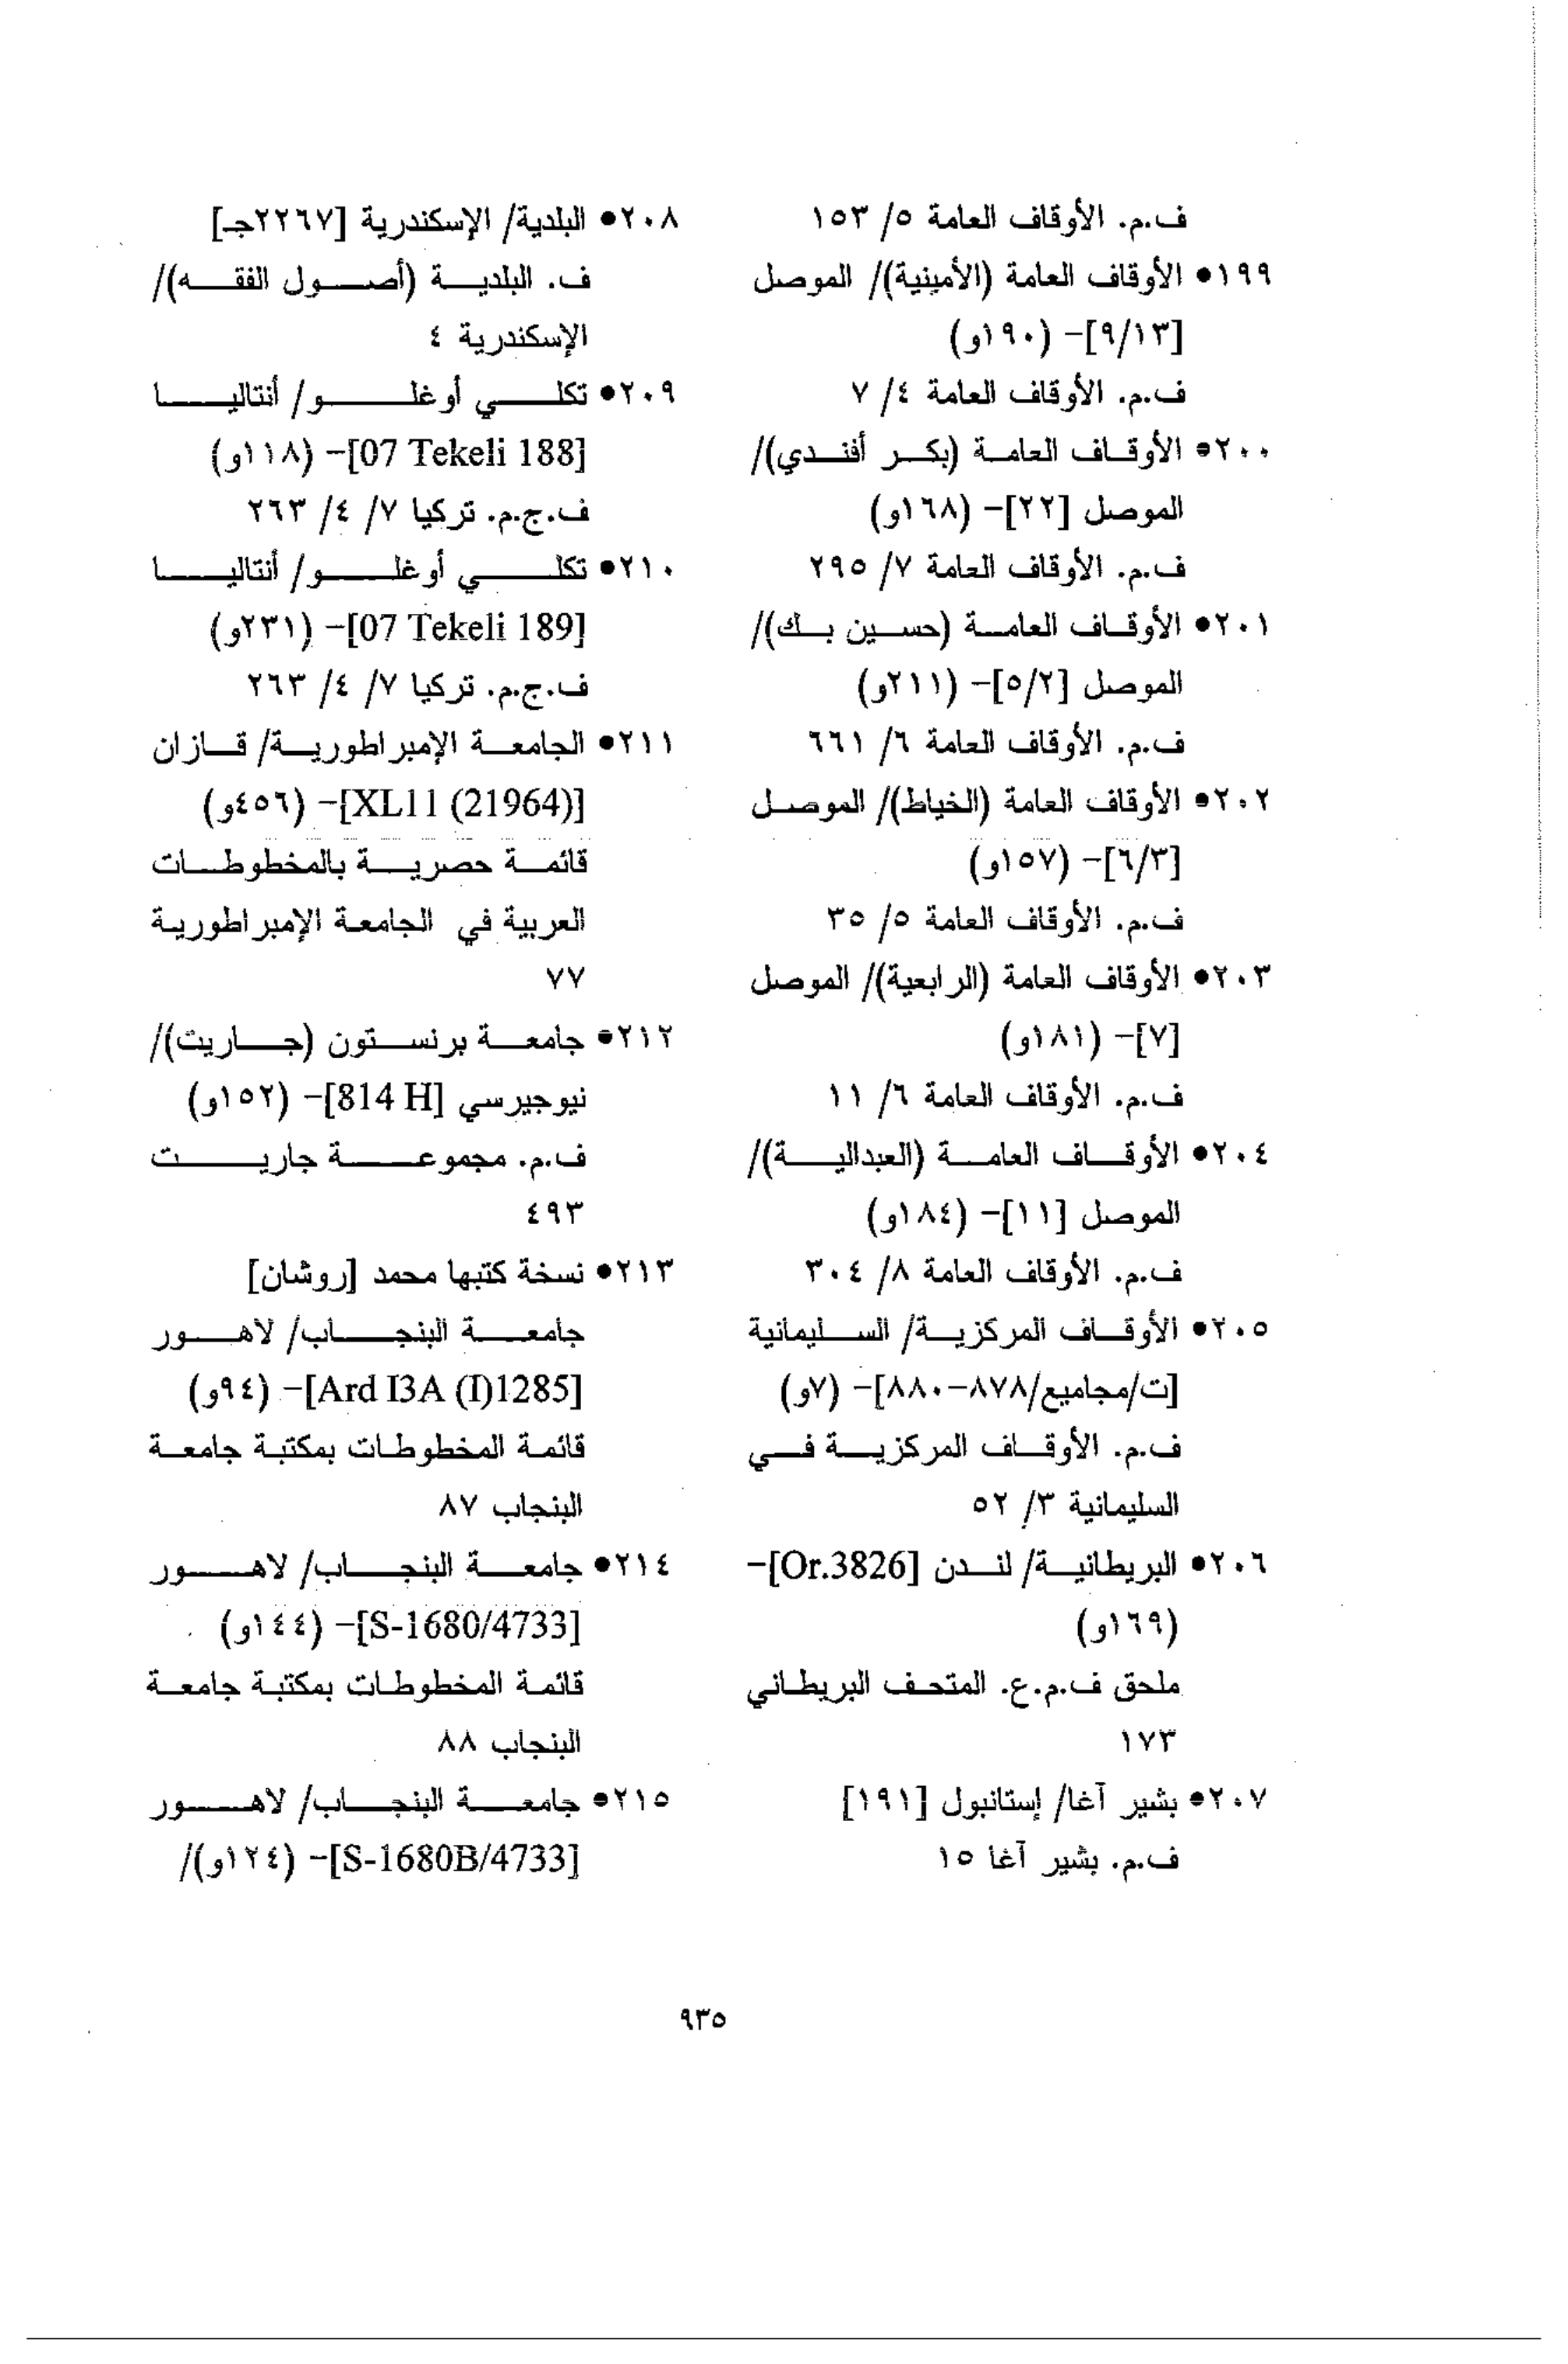 ف.م. الأوقاف العامة ٥/ ١٥٣
١٩٩● الأوقاف العامة (الأمينية)/ الموصل
[٩/١٣]- (١٩٠و)
ف.م. الأوقاف العامة ٤/ ٧
٢٠٠● الأوقاف العامة (بكر أفندي)/
الموصل [٢٢]- (١٦٨و)
ف.م. الأوقاف العامة ٧/ ٢٩٥
٢٠١● الأوقاف العامة (حسين بك)/
الموصل [٥/٢]- (٢١١و)
ف.م. الأوقاف العامة ٦/ ٦٦١
٢٠٢● الأوقاف العامة (الخياط)/ الموصل
[٦/٣]- (١٥٧و)
ف.م. الأوقاف العامة ٥/ ٣٥
٢٠٣● الأوقاف العامة (الرابعية)/ الموصل
[٧]- (١٨١و)
ف.م. الأوقاف العامة ٦/ ١١
٢٠٤● الأوقاف العامة (العبدالية)/
الموصل [١١]- (١٨٤و)
ف.م. الأوقاف العامة ٨/ ٣٠٤
٢٠٥● الأوقاف المركزية/ السليمانية
[ت/مجاميع/٨٧٨-٨٨٠]- (٧و)
ف.م. الأوقاف المركزية في
السليمانية ٣/ ٥٢
٢٠٦● البريطانية/ لندن [Or.3826]-
(١٦٩و)
ملحق ف.م.ع. المتحف البريطاني
١٧٣
٢٠٧● بشير آغا/ إستانبول [١٩١]
ف.م. بشير آغا ١٥
٢٠٨● البلدية/ الإسكندرية [٢٢٦٧جـ]
ف. البلدية (أصول الفقه)/
الإسكندرية ٤
٢٠٩● تكلي أوغلو/ أنتاليا
[07 Tekeli 188]- (١١٨و)
ف.ج.م. تركيا ٧/ ٤/ ٢٦٣
٢١٠● تكلي أوغلو/ أنتاليا
[07 Tekeli 189]- (٢٣١و)
ف.ج.م. تركيا ٧/ ٤/ ٢٦٣
٢١١● الجامعة الإمبراطورية/ قازان
[XL11 (21964)]- (٤٥٦و)
قائمة حصرية بالمخطوطات
العربية في الجامعة الإمبراطورية
٧٧
٢١٢● جامعة برنستون (جاريت)/
نيوجيرسي [814 H]- (١٥٢و)
ف.م. مجموعة جاريت
٤٩٣
٢١٣● نسخة كتبها محمد [روشان]
جامعة البنجاب/ لاهور
[Ard I3A (I)1285]- (٩٤و)
قائمة المخطوطات بمكتبة جامعة
البنجاب ٨٧
٢١٤● جامعة البنجاب/ لاهور
[S-1680/4733]- (١٤٤و)
قائمة المخطوطات بمكتبة جامعة
البنجاب ٨٨
٢١٥● جامعة البنجاب/ لاهور
[S-1680B/4733]- (١٢٤و)/
٩٣٥